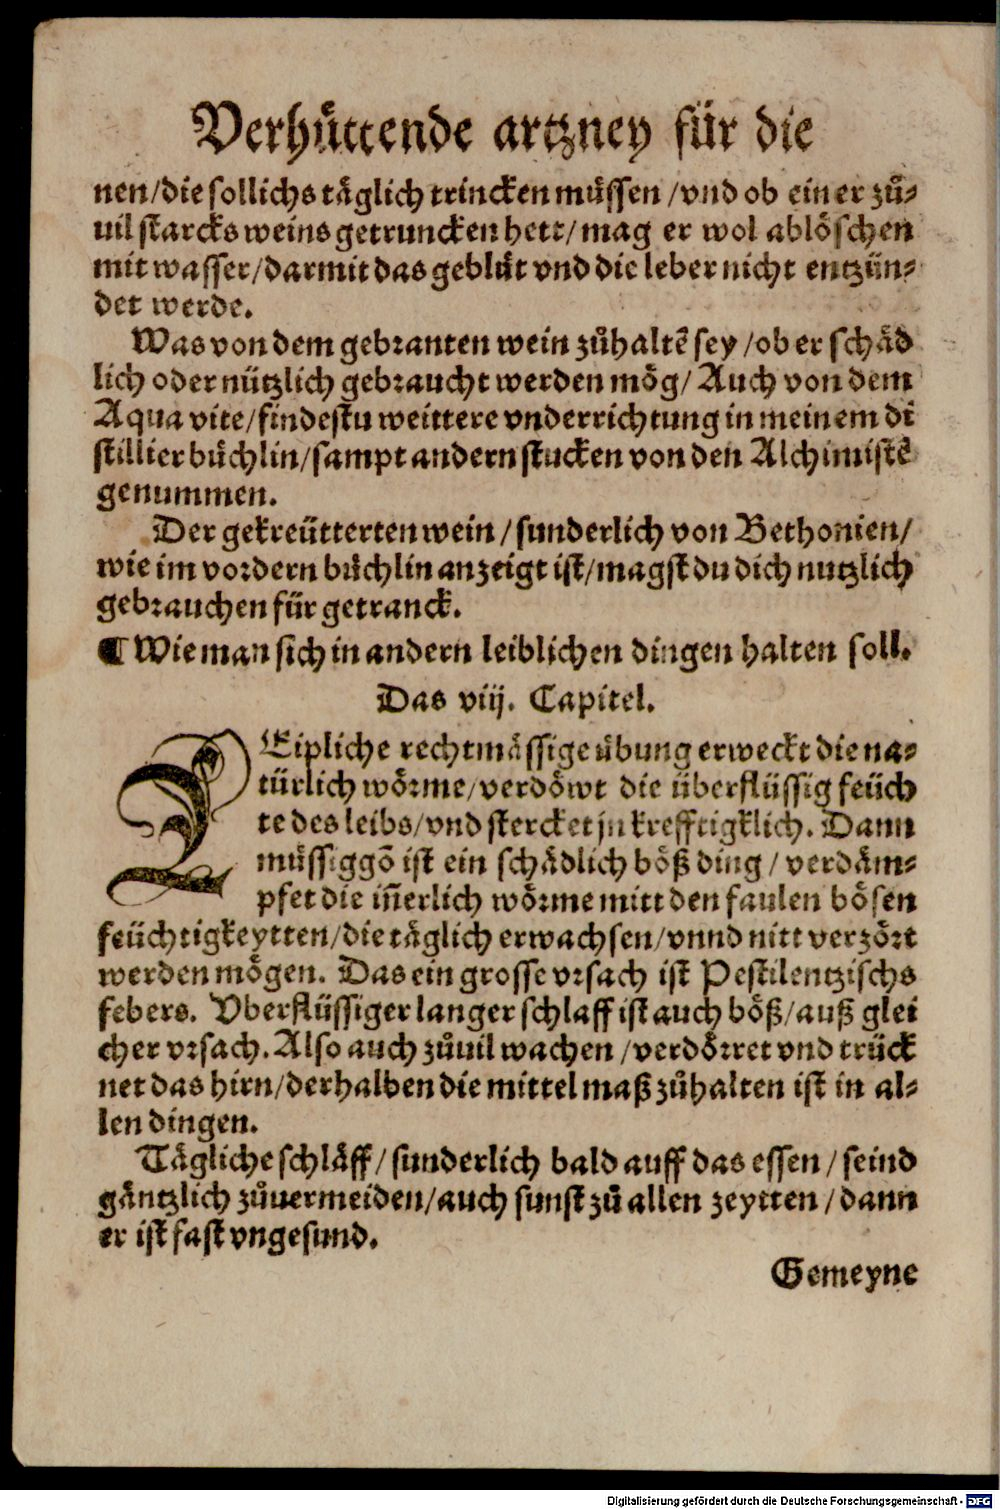 Verhuͤttende artzney für die
nen/die sollichs taͤglich trincken muͤssen/vnd ob einer zuͦ⸗
uil starcks weins getruncken hett/mag er wol abloͤschen
mit wasser/darmit das gebluͤt vnd die leber nicht entzün⸗
det werde.
Was von dem gebranten wein zuͦhaltẽ sey/ob er schaͤd
lich oder nützlich gebraucht werden moͤg/Auch von dem
Aqua vite/findestu weittere vnderrichtung in meinem di
stillier buͤchlin/sampt andern stucken von den Alchimistẽ
genummen.
Der gekreütterten wein/sunderlich von Bethonien/
wie im vordern buͤchlin anzeigt ist/magst du dich nutzlich
gebrauchen für getranck.
¶ Wie man sich in andern leiblichen dingen halten soll.
Das viij. Capitel.
LEipliche rechtmaͤssige uͤbung erweckt die na⸗
türlich woͤrme/verdoͤwt die überflüssig feüch
te des leibs/vnd stercket jn krefftigklich. Dann
muͤssiggõ ist ein schaͤdlich boͤß ding/verdaͤm⸗
pfet die iñerlich woͤrme mitt den faulen boͤsen
feüchtigkeytten/die taͤglich erwachsen/vnnd nitt verzoͤrt
werden moͤgen. Das ein grosse vrsach ist Pestilentzischs
febers. Vberflüssiger langer schlaff ist auch boͤß/auß glei
cher vrsach. Also auch zuͦuil wachen/verdoͤrret vnd trück
net das hirn/derhalben die mittel maß zuͦhalten ist in al⸗
len dingen.
Taͤgliche schlaͤff/sunderlich bald auff das essen/seind
gaͤntzlich zuͦuermeiden/auch sunst zuͦ allen zeytten/dann
er ist fast vngesund.
Gemeyne
Digitalisierung gefördert durch die Deutsche Forschungsgemeinschaft - DFG